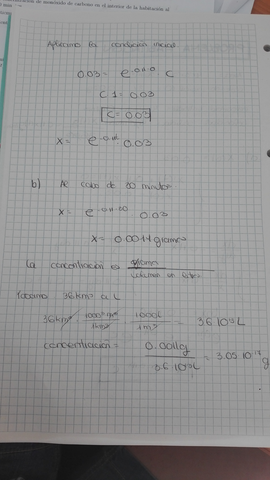 de monóxido de carbono en el interior de la habitación al
Aplicamos la condición inicial
0.03 = e^-0.11·0 C
C·1 = 0.03
C = 0.03
x = e · 0.03
b) Al cabo de minutos
x = e 0.03
x = 0.0011 gramos
la concentración es gramos
volumen en litros
Pasamos 36km³ a L
36km³ · 1000³ m³ / 1km³ · 1000L / 1m³ = 36·10¹² L
concentración = 0.0011g / 36·10¹² L = 3.05·10⁻¹⁷ g